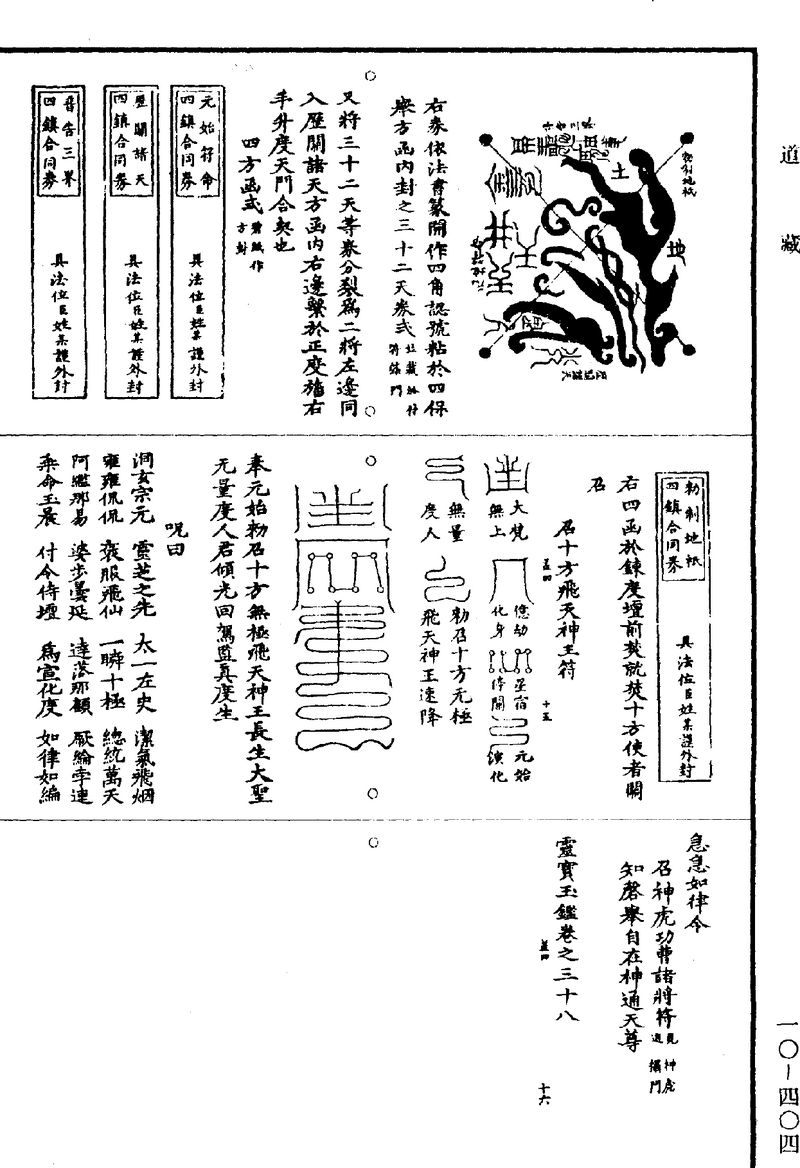 道藏
土
地
勑制地祇
右券依法書篆開作四角認號粘於四保
舉方函內封之三十二天券式
又將三十二天等券分裂爲二將左邊同
入歷關諸天方函內右邊繫於正度旛右
手升度天門合契也
四方函式
元始符命
四鎮合同券
具法位臣姓某謹外封
歷關諸天
四鎮合同券
具法位臣姓某謹外封
音告三界
四鎮合同券
具法位臣姓某謹外封
勑制地祇
四鎮合同券
具法位臣姓某謹外封
右四函於鍊度壇前焚訖焚十方使者關
召
召十方飛天神王符
大梵
無上
億劫
化身
星宿
停關
元始
演化
無量
度人
勑召十方元極
飛天神王速降
奉元始勑召十方無極飛天神王長生大聖
无量度人君傾光回駕監真度生
呪曰
洞玄宗元 靈芝之先 太一左史 潔氣飛烟
雍雍侃侃 袞服飛仙 一瞬十極 總統萬天
阿鑑那易 娑步曇延 達落那顧 厭綸孛連
承命玉晨 付令侍壇 爲宣化度 如律如編
十五
急急如律令
召神虎功曹諸將符
知磬舉自在神通天尊
靈寶玉鑑卷之三十八
十六
一〇-四〇四